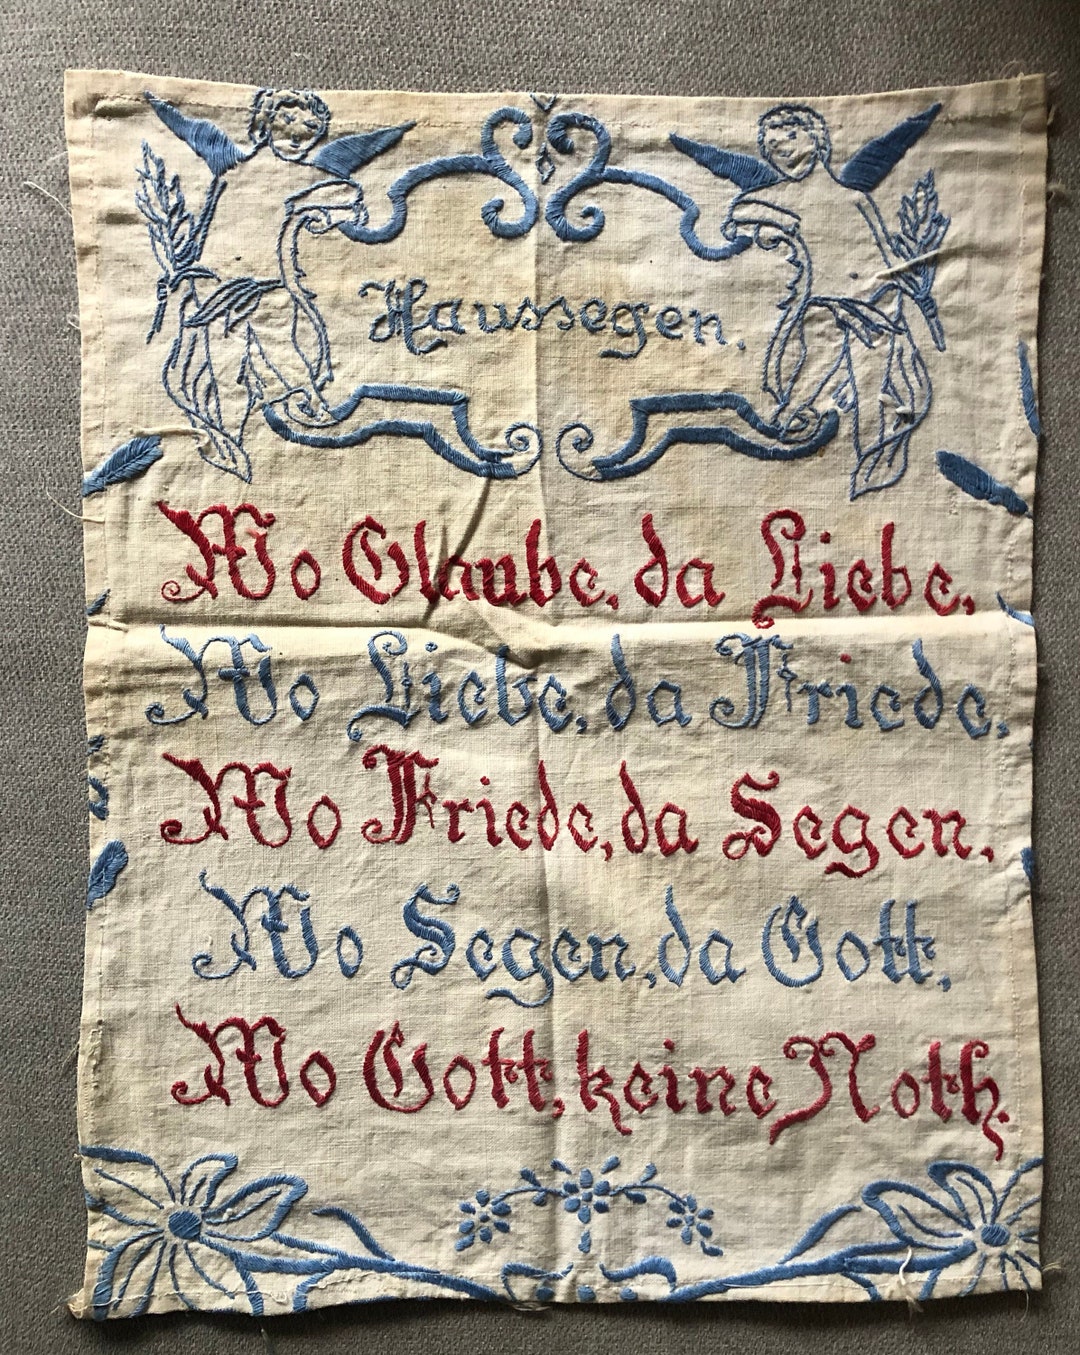 Haussegen.
Wo Glaube, da Liebe,
Wo Liebe, da Friede,
Wo Friede, da Segen,
Wo Segen, da Gott,
Wo Gott, keine Noth.